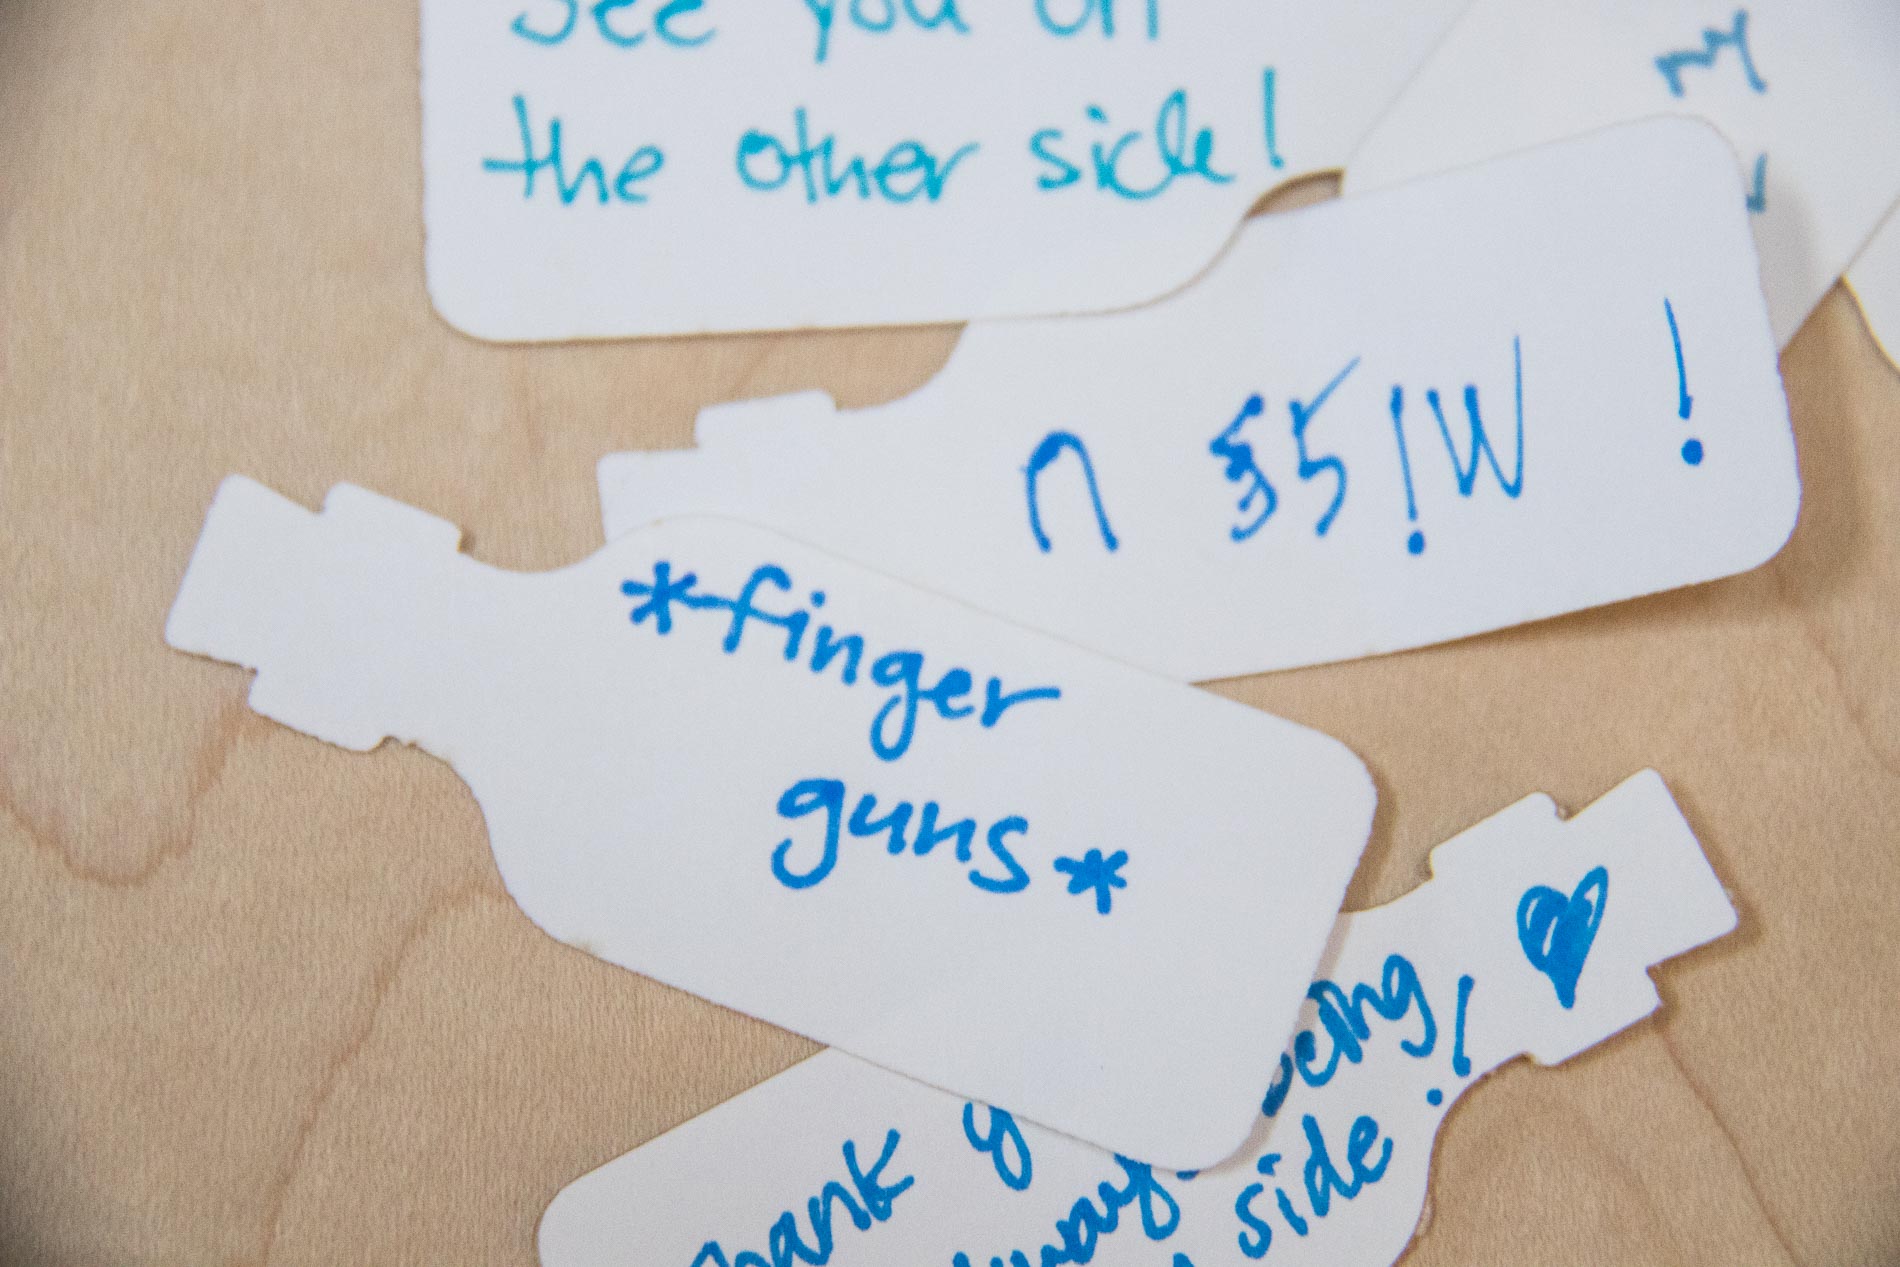 See you on
the other side!
i Miss U
*finger
guns*
Thank being
side!